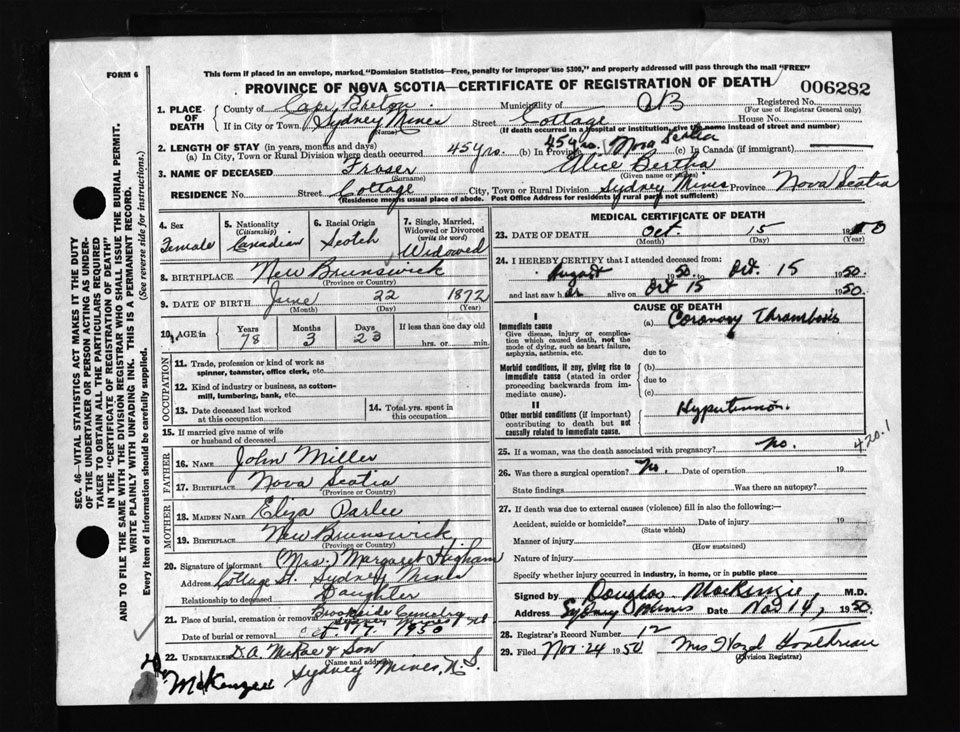 FORM 6
This form if placed in an envelope, marked "Dominion Statistics—Free, penalty for improper use $300," and properly addressed will pass through the mail "FREE"
PROVINCE OF NOVA SCOTIA—CERTIFICATE OF REGISTRATION OF DEATH 006282
1. PLACE OF DEATH
County of Cape Breton Municipality of CB Registered No.
(For use of Registrar General only)
If in City or Town Sydney Mines Street Cottage House No.
(Name) (If death occurred in a hospital or institution, give the name instead of street and number)
2. LENGTH OF STAY (in years, months and days)
(a) In City, Town or Rural Division where death occurred 45 yrs. (b) In Province 45 yrs. Nova Scotia (c) In Canada (if immigrant)
3. NAME OF DECEASED Fraser Alice Bertha
(Surname) (Given name or names)
RESIDENCE No. Street Cottage City, Town or Rural Division Sydney Mines Province Nova Scotia
(Residence means usual place of abode. Post Office Address for residents of rural parts not sufficient)
4. Sex Female
5. Nationality (Citizenship) Canadian
6. Racial Origin Scotch
7. Single, Married, Widowed or Divorced (write the word) Widowed
8. BIRTHPLACE New Brunswick
(Province or Country)
9. DATE OF BIRTH June 22 1872
(Month) (Day) (Year)
10. AGE in Years 78 Months 3 Days 23 If less than one day old hrs. or min.
OCCUPATION
11. Trade, profession or kind of work as spinner, teamster, office clerk, etc.
12. Kind of industry or business, as cotton-mill, lumbering, bank, etc.
13. Date deceased last worked at this occupation
14. Total yrs. spent in this occupation
15. If married give name of wife or husband of deceased
FATHER
16. NAME John Miller
17. BIRTHPLACE Nova Scotia
(Province or Country)
MOTHER
18. MAIDEN NAME Eliza Parlee
19. BIRTHPLACE New Brunswick
(Province or Country)
20. Signature of informant (Mrs.) Margaret Higham
Address Cottage St. Sydney Mines
Relationship to deceased Daughter
21. Place of burial, cremation or removal Brookside Cemetery
Date of burial or removal Oct. 17, 1950
22. UNDERTAKER D.A. McRae & Son
(Name and address)
Sydney Mines, N.S.
McKenzie
MEDICAL CERTIFICATE OF DEATH
23. DATE OF DEATH Oct. 15 1950
(Month) (Day) (Year)
24. I HEREBY CERTIFY that I attended deceased from:
August 1950 to Oct. 15 1950
and last saw her alive on Oct 15 1950.
CAUSE OF DEATH
I
Immediate cause (a) Coronary Thrombosis
Give disease, injury or complication which caused death, not the mode of dying, such as heart failure, asphyxia, asthenia, etc.
due to
Morbid conditions, if any, giving rise to immediate cause (stated in order proceeding backwards from immediate cause). (b)
due to
(c)
II
Other morbid conditions (if important) contributing to death but not causally related to immediate cause. Hypertension.
25. If a woman, was the death associated with pregnancy? no. 420.1
26. Was there a surgical operation? no. Date of operation 19
State findings Was there an autopsy?
27. If death was due to external causes (violence) fill in also the following:—
Accident, suicide or homicide? Date of injury 19
(State which)
Manner of injury
(How sustained)
Nature of injury
Specify whether injury occurred in industry, in home, or in public place
Signed by Douglas MacKenzie M.D.
Address Sydney Mines Date Nov 14, 1950.
28. Registrar's Record Number 12
29. Filed Nov. 24 1950 Mrs Hazel
(Division Registrar)
SEC. 46—VITAL STATISTICS ACT MAKES IT THE DUTY
OF THE UNDERTAKER OR PERSON ACTING AS UNDER-
TAKER TO OBTAIN ALL THE PARTICULARS REQUIRED
IN THE "CERTIFICATE OF REGISTRATION OF DEATH"
AND TO FILE THE SAME WITH THE DIVISION REGISTRAR WHO SHALL ISSUE THE BURIAL PERMIT.
WRITE PLAINLY WITH UNFADING INK. THIS IS A PERMANENT RECORD.
Every item of information should be carefully supplied. (See reverse side for instructions.)